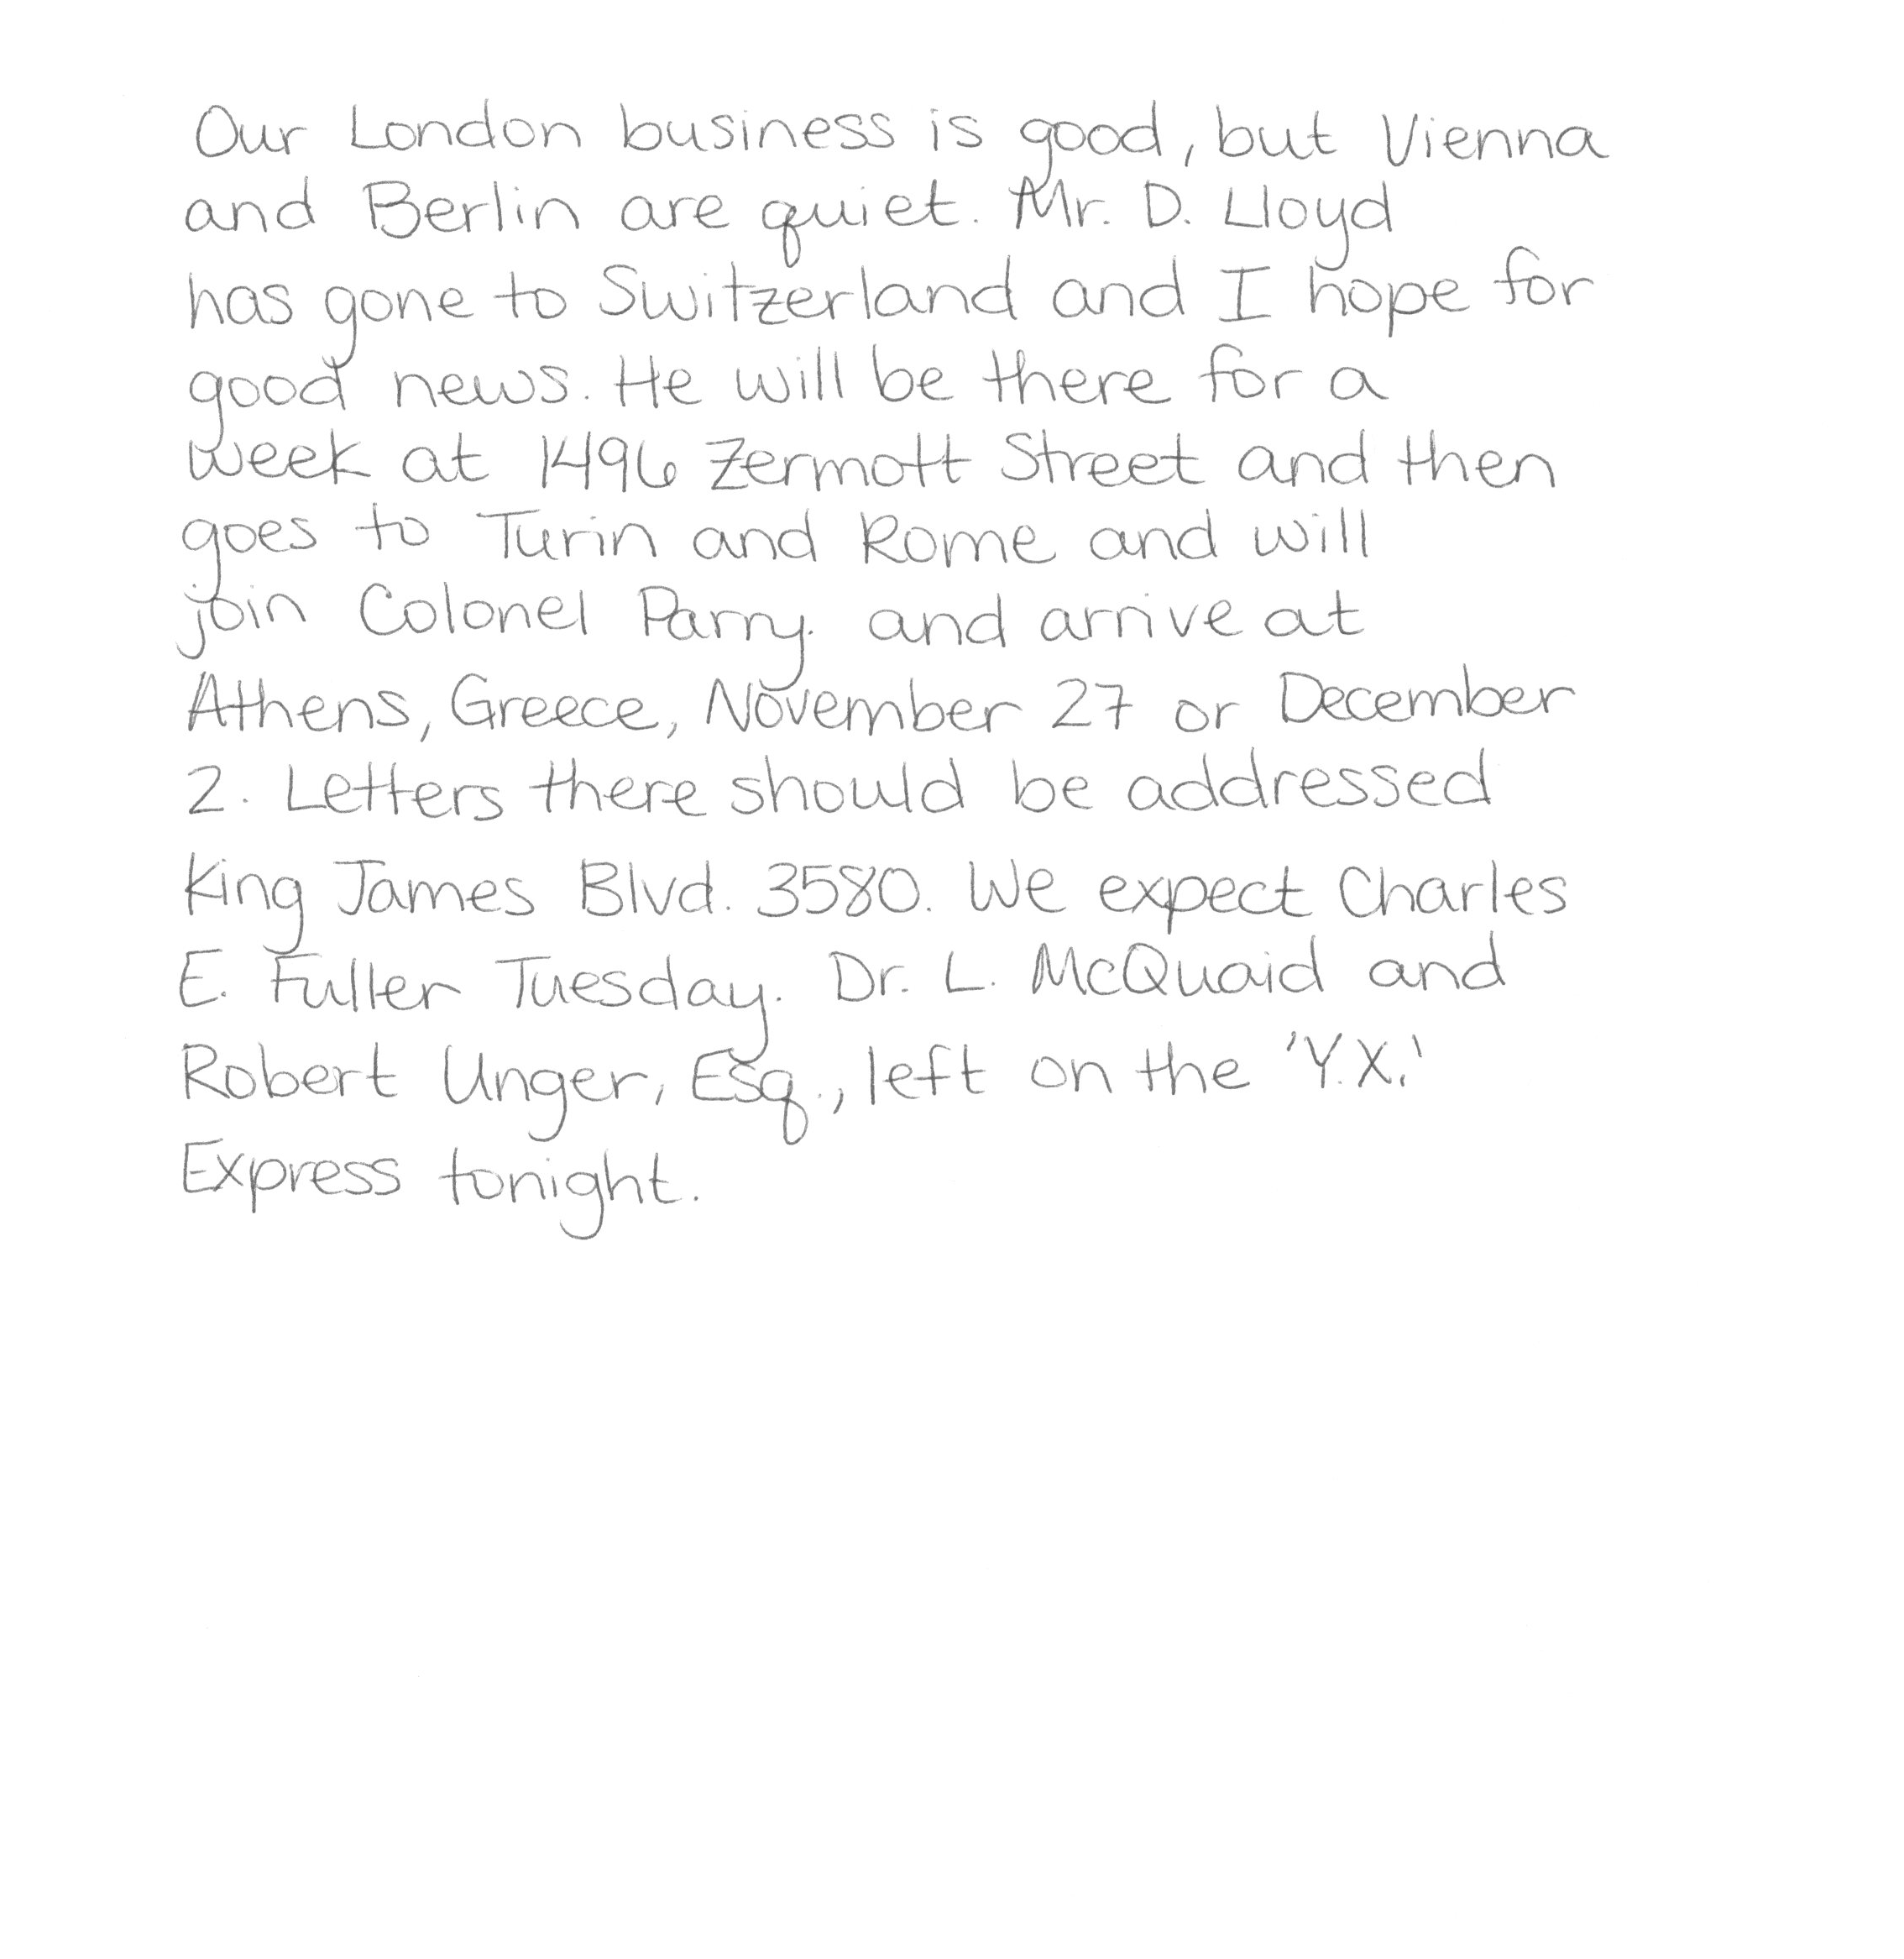 Our London business is good, but Vienna
and Berlin are quiet. Mr. D. Lloyd
has gone to Switzerland and I hope for
good news. He will be there for a
week at 1496 Zermott Street and then
goes to Turin and Rome and will
join Colonel Parry. and arrive at
Athens, Greece, November 27 or December
2. Letters there should be addressed
King James Blvd. 3580. We expect Charles
E. Fuller Tuesday. Dr. L. McQuaid and
Robert Unger, Esq., left on the 'Y.X.'
Express tonight.